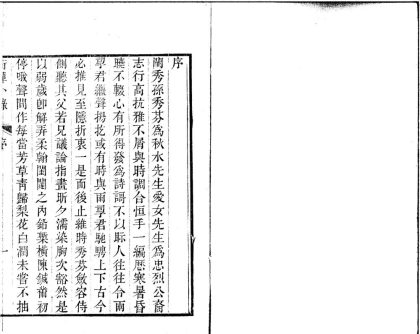 序
閨秀孫秀芬爲秋水先生愛女先生爲忠烈公裔
志行高抗雅不屑與時調合恒手一編歷寒暑昏
曉不輟心有所得發爲詩謌不以眎人往往令雨
㝛君繼聲揚扢或有時與雨㝛君馳騁上下古今
必推見至隱折衷一是而後止維時秀芬斂容侍
側聽其父若兄議論指畫昕夕濡染胸次豁然是
以弱歲卽解弄柔翰閨闥之內鉛葉橫陳鍼黹初
停哦聲間作每當芳草靑歸梨花白澗未嘗不抽
序
一